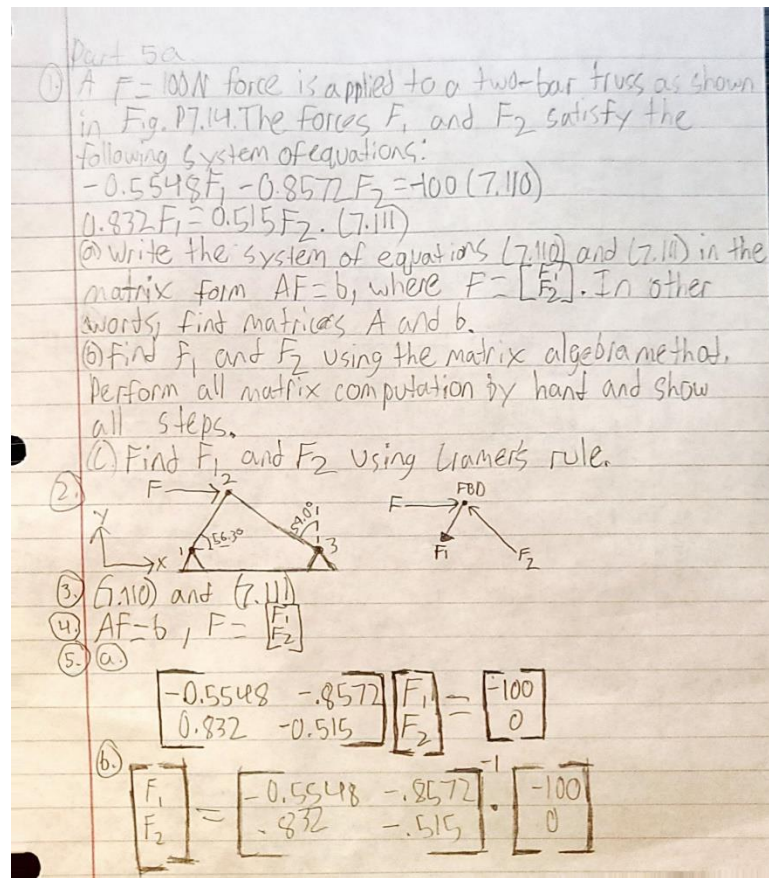 Part 5a
1. A F = 100N force is applied to a two-bar truss as shown
in Fig. P7.14. The forces F₁ and F₂ satisfy the
following system of equations:
-0.5548F₁ - 0.8572F₂ = -100 (7.110)
0.832F₁ = 0.515F₂. (7.111)
(a) Write the system of equations (7.110) and (7.111) in the
matrix form AF = b, where F = [F₁ F₂]. In other
words, find matrices A and b.
(b) Find F₁ and F₂ using the matrix algebra method.
Perform all matrix computation by hand and show
all steps.
(c) Find F₁ and F₂ using Cramer's rule.
2. F 2 FBD
y F
1 56.3° 59.0° 3 F₁ F₂
x
3. (7.110) and (7.111)
4. AF = b, F = [F₁ F₂]
5. a.
[-0.5548 -.8572] [F₁] = [-100]
[0.832 -0.515] [F₂] [0]
b.
[F₁] = [-0.5548 -.8572]⁻¹ · [-100]
[F₂] [.832 -.515] [0]